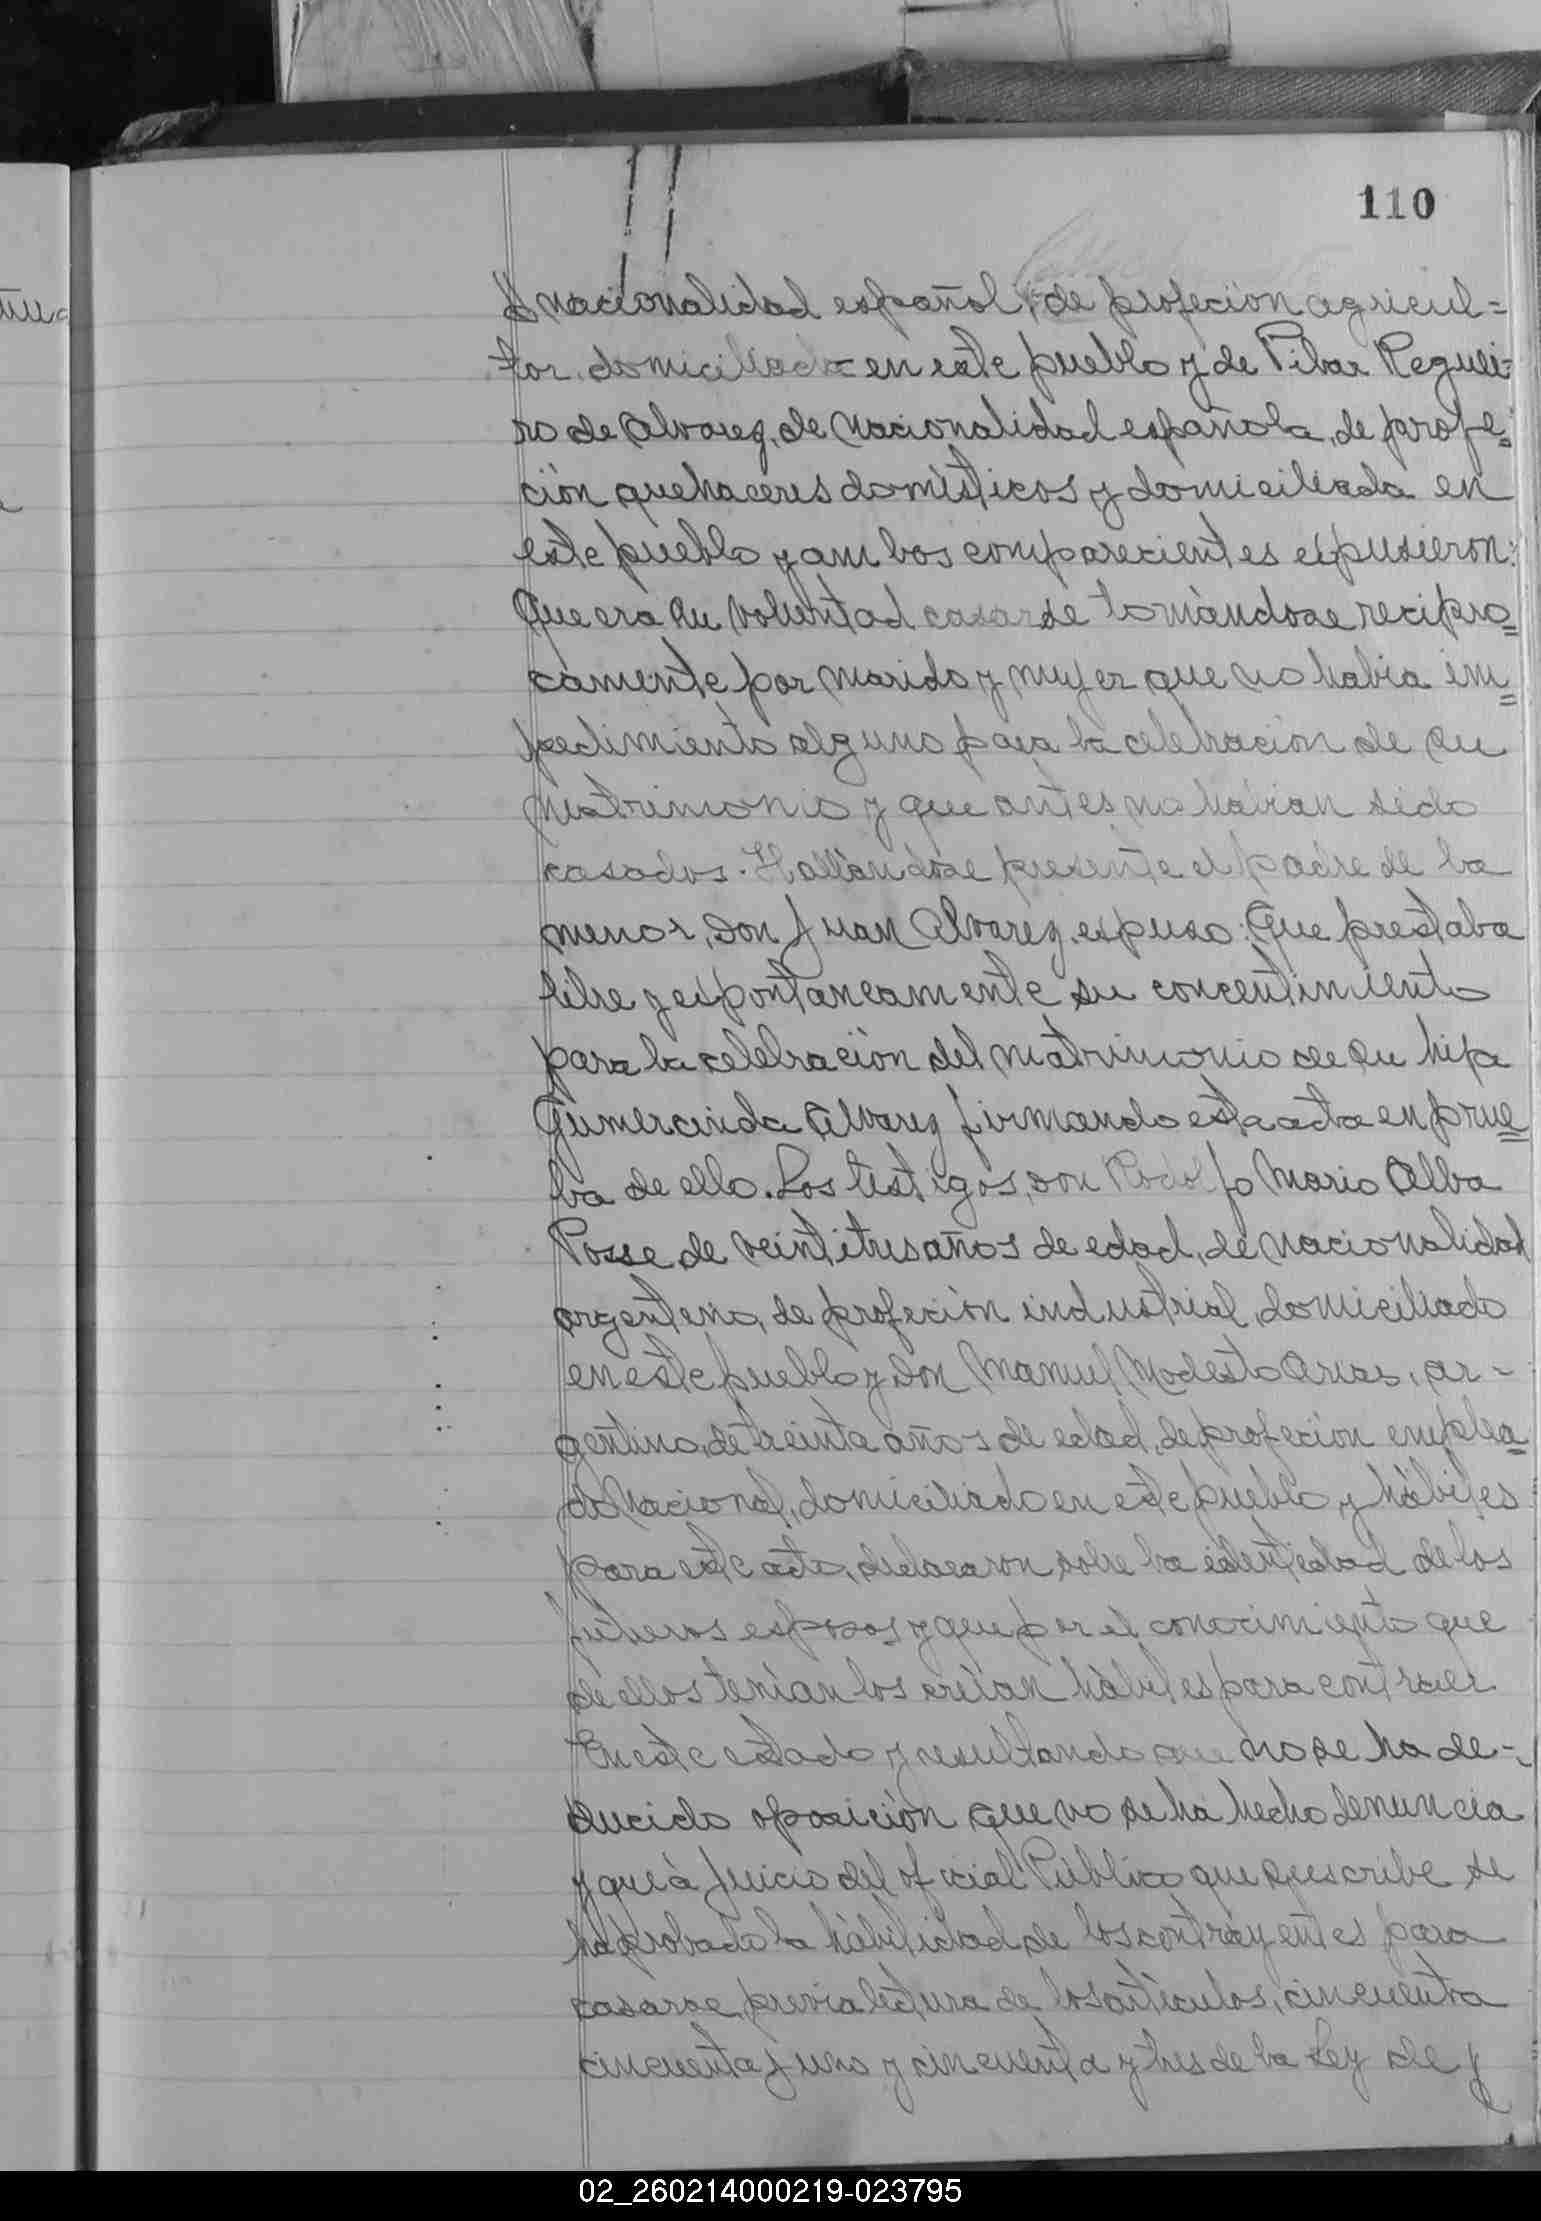 110
nacionalidad español, de profeción agricul=
tor domiciliado en este pueblo y de Pilar Reguei=
ro de Alvarez, de nacionalidad española, de profe=
ción quehaceres domésticos y domiciliada en
este pueblo y ambos comparecientes eipusieron:
Que era su voluntad casarse tomándose recipro=
camente por marido y mujer que no habia im=
pedimiento alguno para la celebracion de su
matrimonio y que antes no habian sido
casados. Hallándose presente el padre de la
menor, Don Juan Alvarez, espuso: Que prestaba
libre y eipontaneamente su concentimiento
para la celebración del matrimonio de su hija
Gumercinda Alvarez firmando esta acta en prue=
ba de ello. Los testigos, don Rodolfo Mario Alba
Posse, de veintitres años de edad, de nacionalidad
argentino, de profeción industrial, domiciliado
en este pueblo y don Manuel Modesto Arias, ar=
gentino, de treinta años de edad, de profeción emplea=
do Nacional, domiciliado en este pueblo, y hábiles
para este acto, declararon sobre la identidad de los
futuros esposos y que por el conocimiento que
de ellos tenían los creían hábiles para contraer
En este estado y resultando que no se ha de-
ducido oposición que no se ha hecho denuncia
y que á juicio del oficial Público que suscribe se
ha probado la habilidad de los contrayentes para
casarse, previa lectura de los artículos, cincuenta
cincuenta y uno y cincuenta y tres de la Ley de
02_260214000219-023795